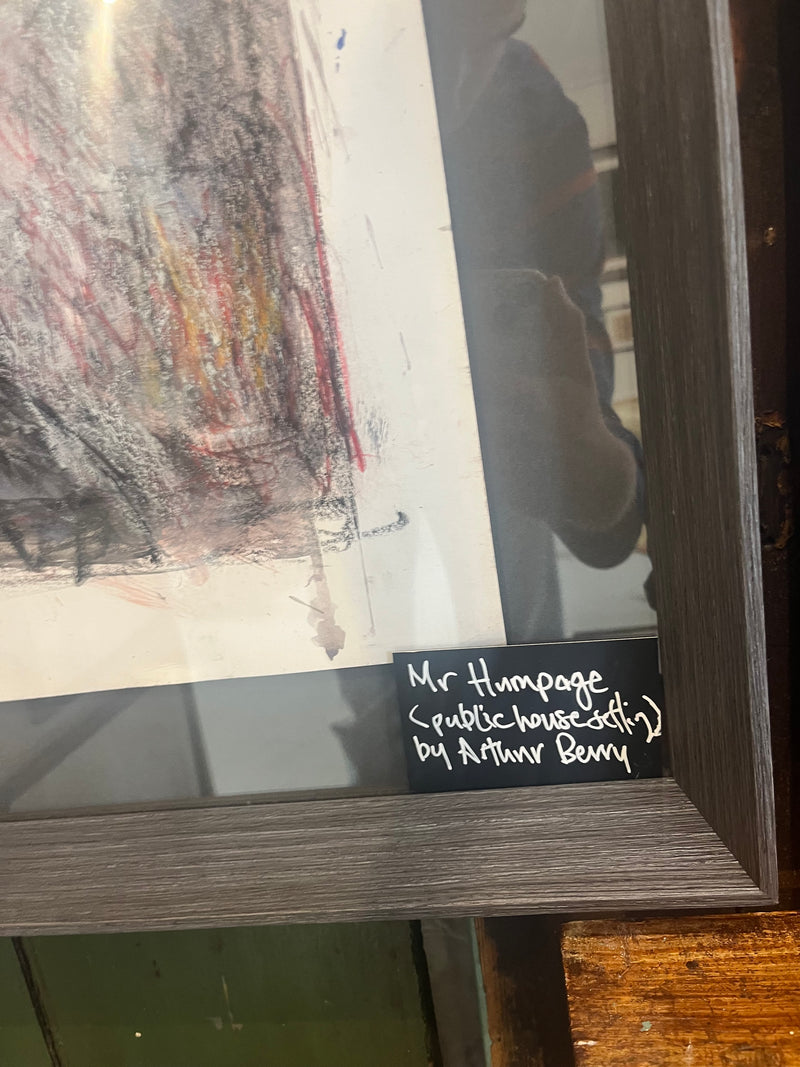 Mr Humpage
(public house setting)
by Arthur Berry